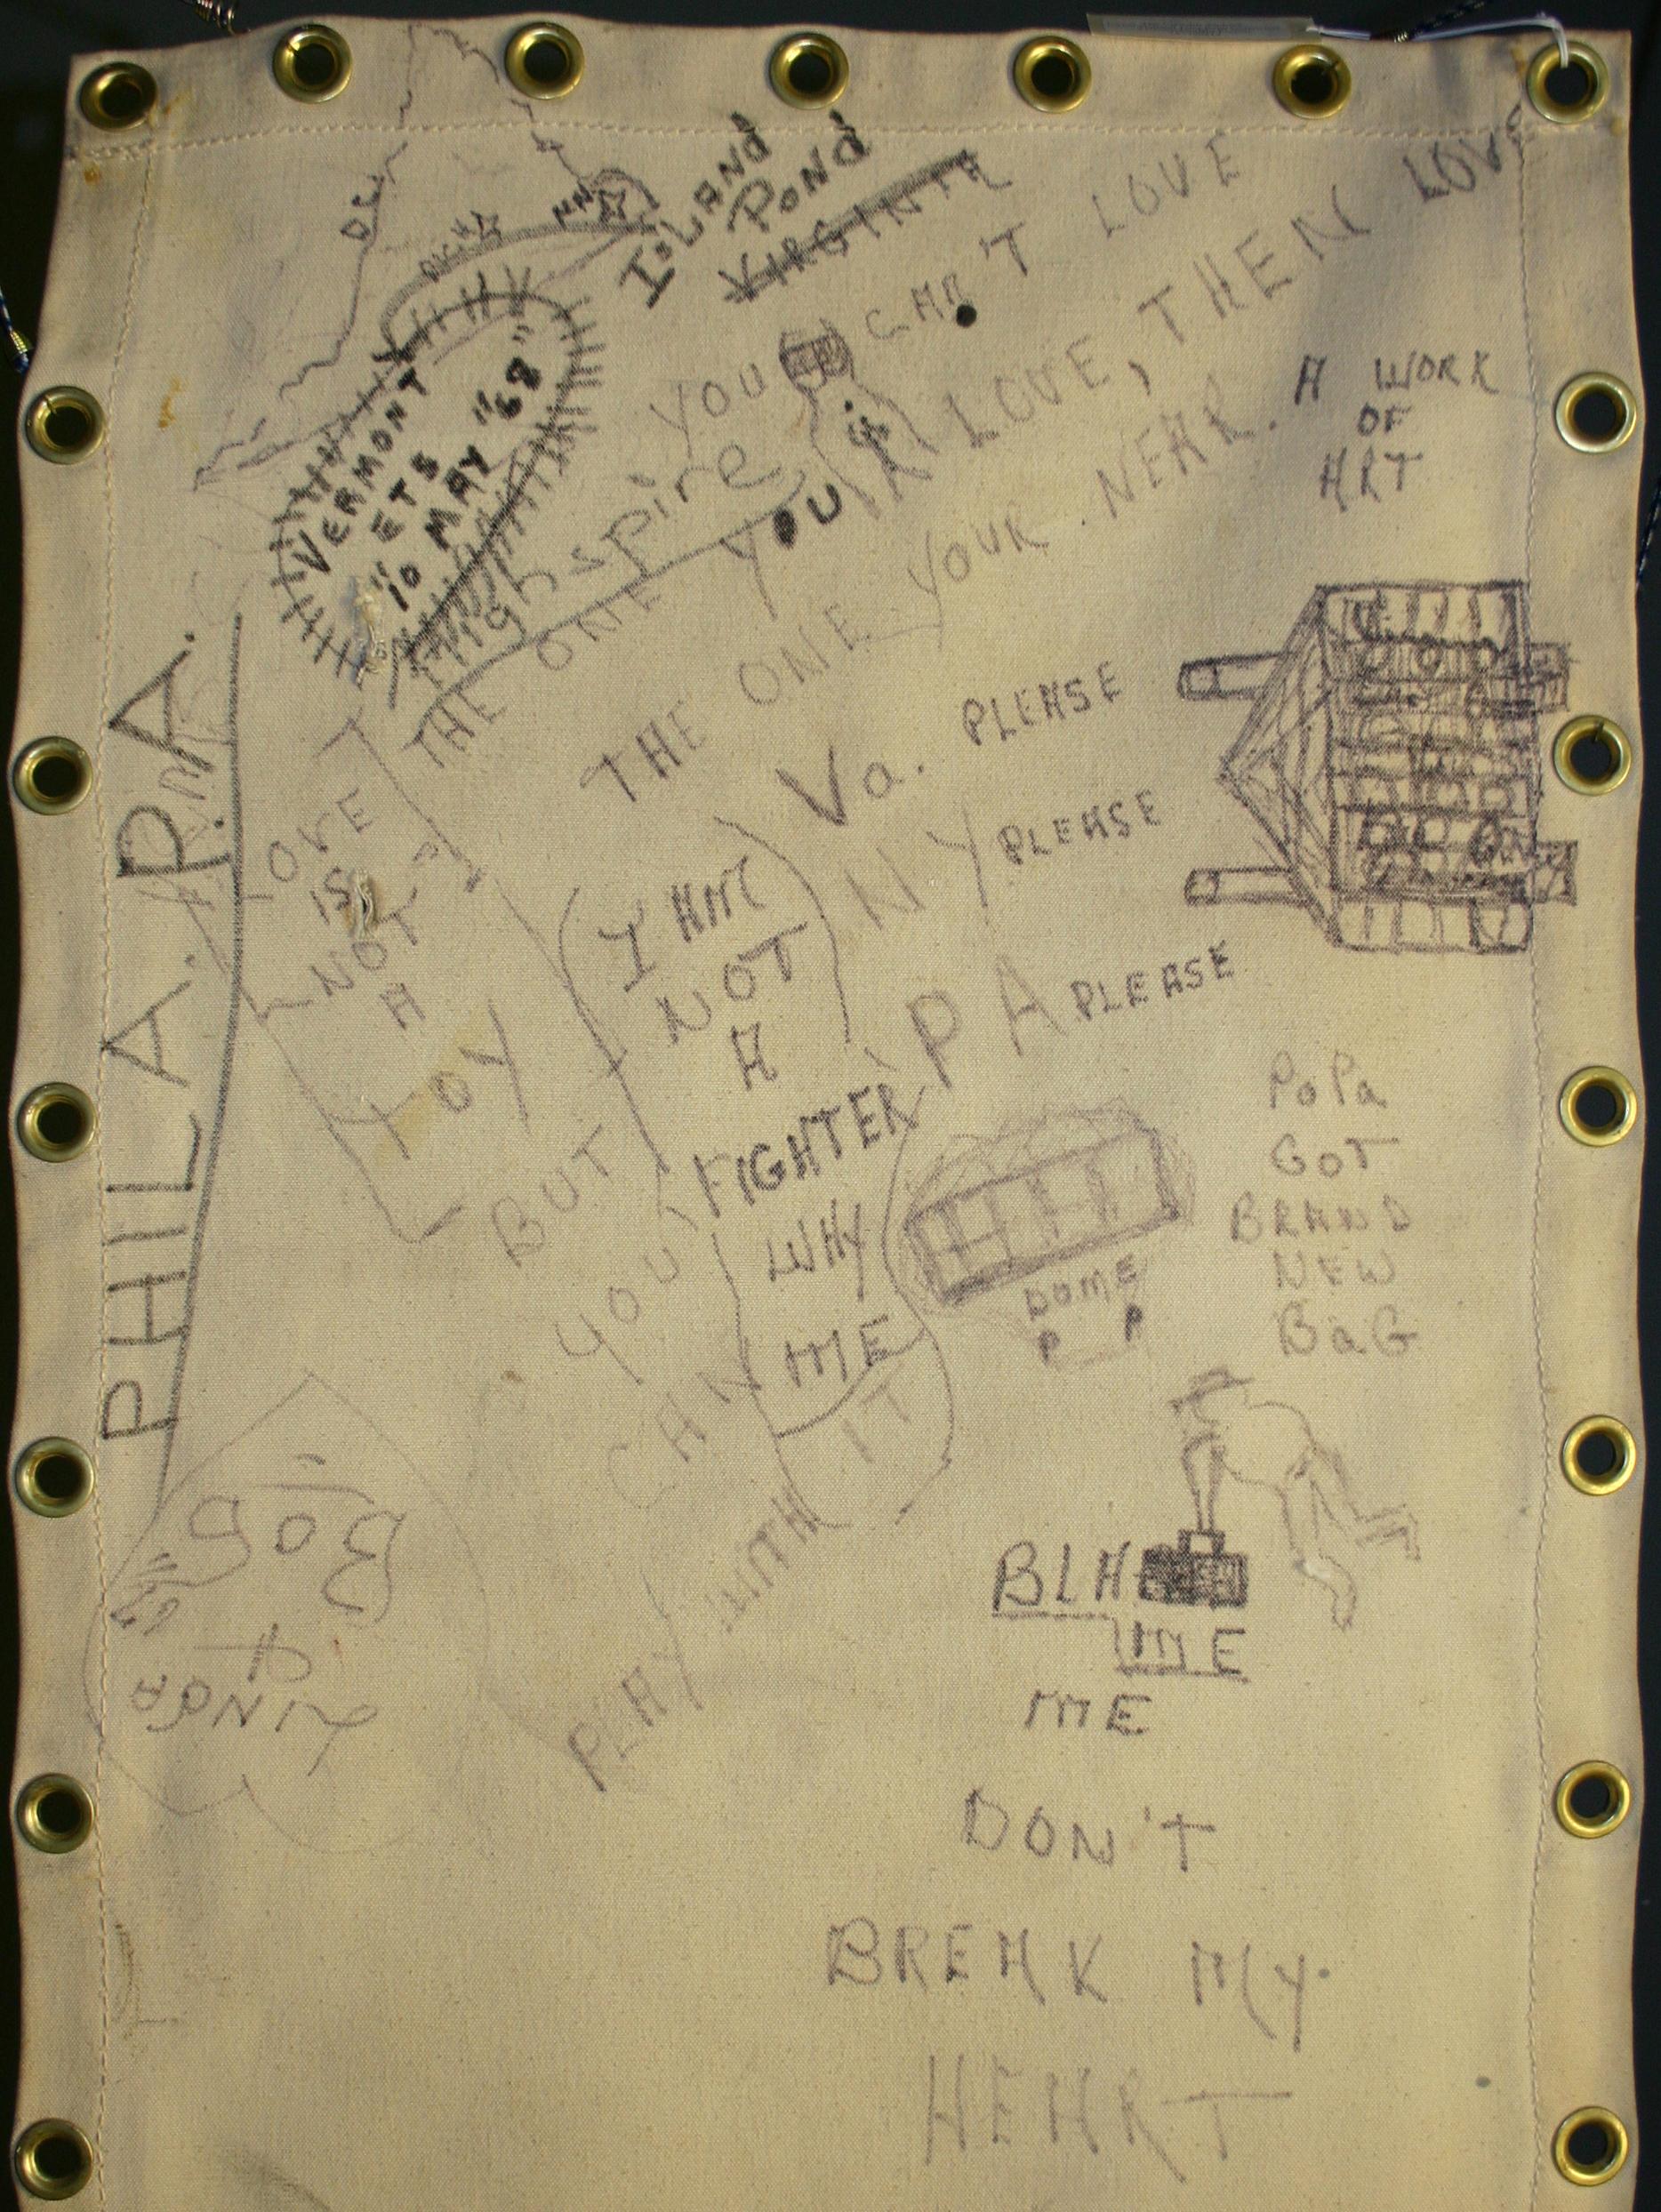 ISLAND
POND
VIRGINIA
VERMONT
ETS
"10 MAY "68"
Highspire
PHILA. PA.
YOU CAN'T LOVE
THE ONE YOU LOVE, THEN LOVE
THE ONE YOUR NEAR.
A WORK
OF
ART
Va. PLEASE
NY PLEASE
PA PLEASE
LOVE
IS
NOT
A
TOY
BUT
YOU
CAN
PLAY
WITH
IT
I AM
NOT
A
FIGHTER
WHY
ME
DOME
P P
PoPa
GOT
BRAND
NEW
BaG
BLA
ME
ME
DON'T
BREAK MY
HEART
Bob
LINDA